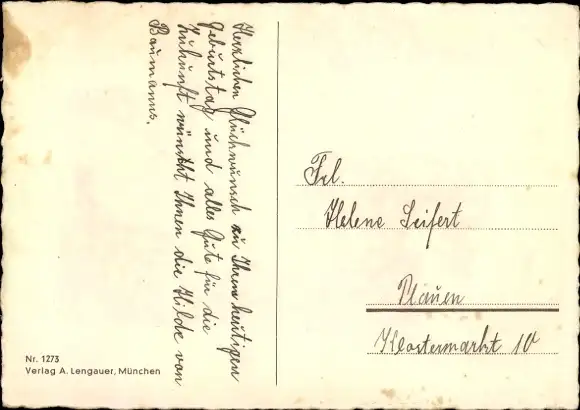 Herzlichen Glückwunsch zu Ihrem heutigen
Geburtstag und alles Gute für die
Zukunft wünscht Ihnen die Hilde von
Baumanns.
Frl.
Helene Seifert
Plauen
Klostermarkt 10
Nr. 1273
Verlag A. Lengauer, München